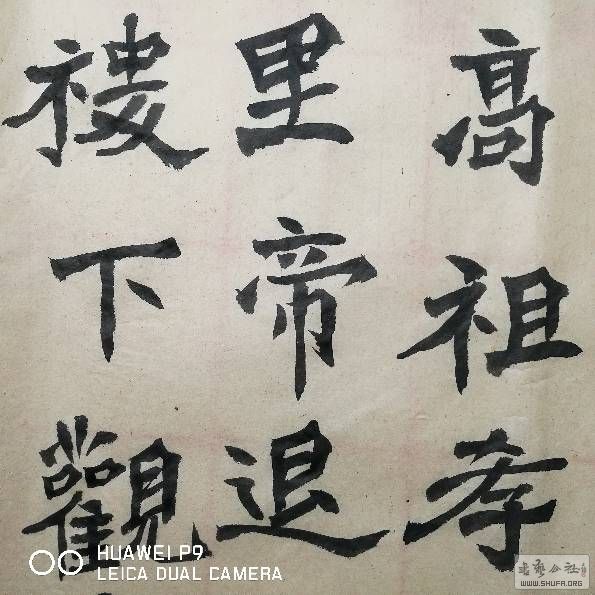 高祖孝
里帝退
禝下觀
HUAWEI P9
LEICA DUAL CAMERA
WWW.SHUFA.ORG